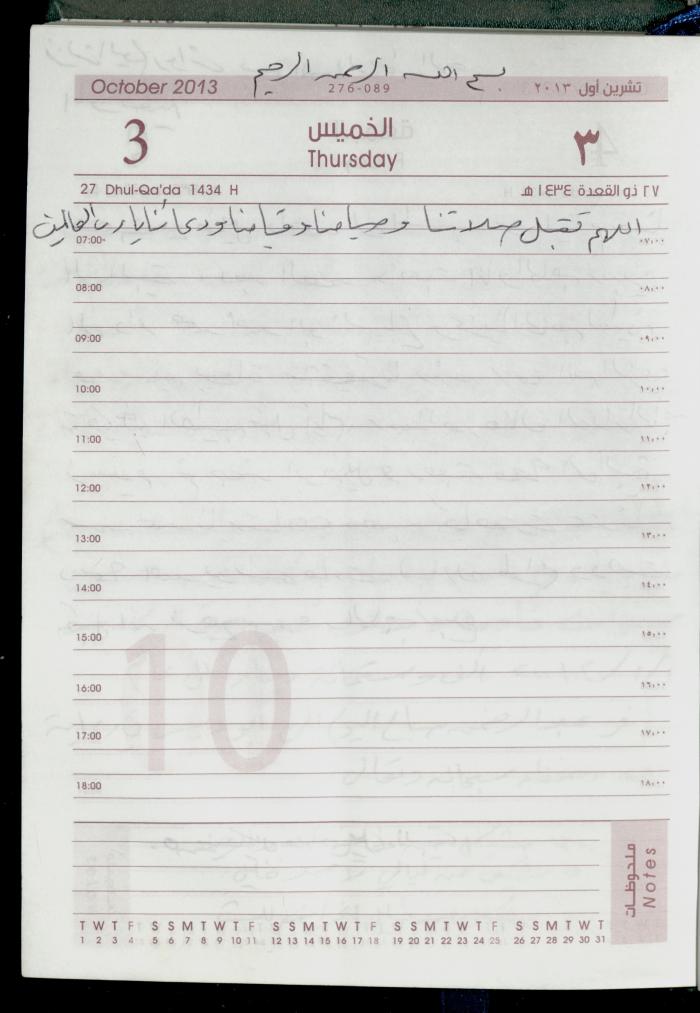 بسم الله الرحمن الرحيم
October 2013 276-089 تشرين أول ٢٠١٣
3 الخميس ٣
Thursday
27 Dhul-Qa'da 1434 H ٢٧ ذو القعدة ١٤٣٤ هـ
اللهم تقبل صلاتنا وصيامنا وقيامنا ودعائنا يا رب العالمين
07:00 ٠٧,٠٠
08:00 ٠٨,٠٠
09:00 ٠٩,٠٠
10:00 ١٠,٠٠
11:00 ١١,٠٠
12:00 ١٢,٠٠
13:00 ١٣,٠٠
14:00 ١٤,٠٠
15:00 ١٥,٠٠
10
16:00 ١٦,٠٠
17:00 ١٧,٠٠
18:00 ١٨,٠٠
ملحوظات
Notes
T W T F S S M T W T F S S M T W T F S S M T W T F S S M T W T
1 2 3 4 5 6 7 8 9 10 11 12 13 14 15 16 17 18 19 20 21 22 23 24 25 26 27 28 29 30 31